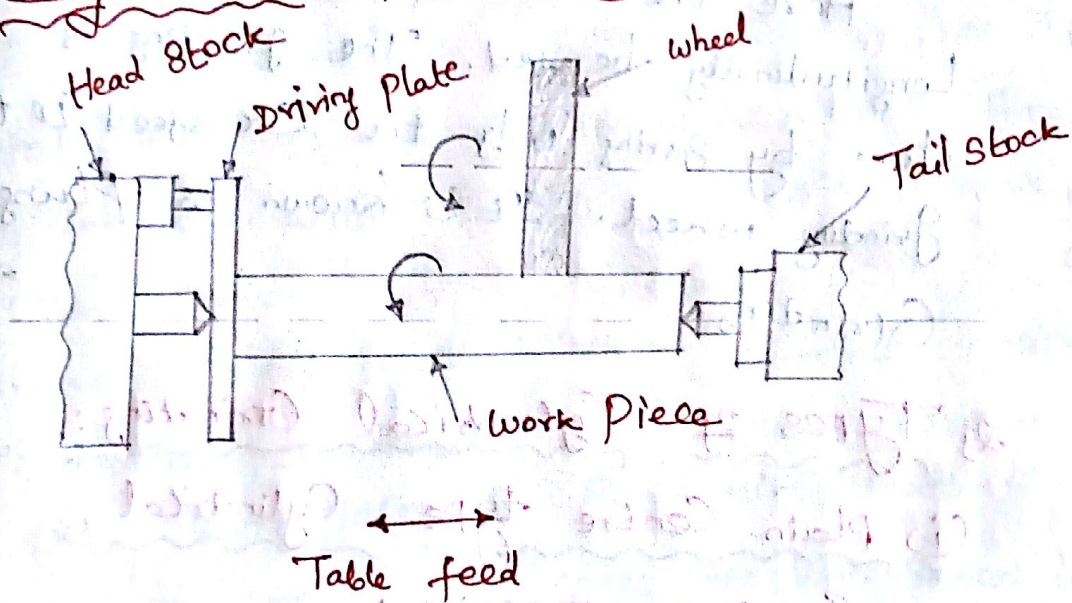 Head Stock
Driving Plate
wheel
Tail Stock
Work Piece
Table feed